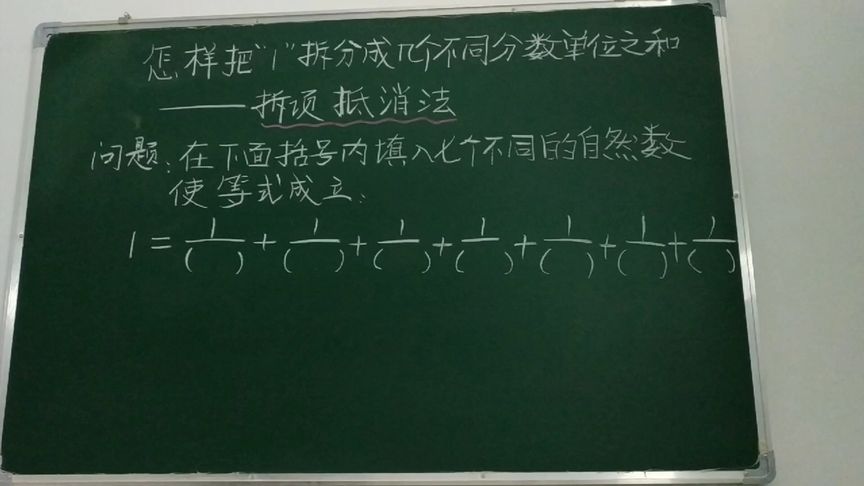 怎样把“1”拆分成几个不同分数单位之和
——拆项抵消法
问题:在下面括号内填入七个不同的自然数
使等式成立.
1=1/( )+1/( )+1/( )+1/( )+1/( )+1/( )+1/( )